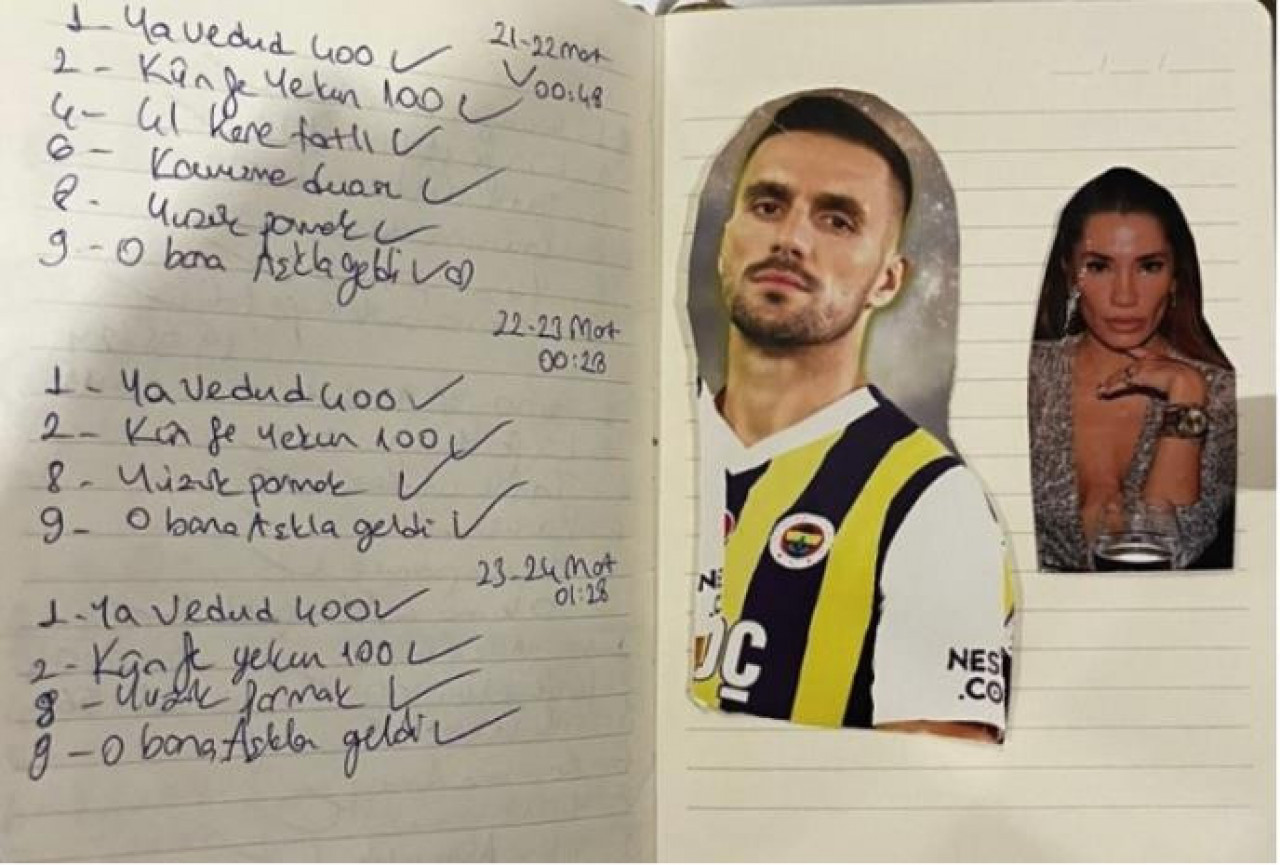 1- Ya Vedud 400 ✓
21-22 Mart
✓ 00:48
2 - Kün fe Yekün 100 ✓
4- 41 Kere tatlı ✓
6 - Kavuşma duası ✓
8 - Yüzük parmak ✓
9 - O bana Aşkla geldi ✓
22-23 Mart
00:28
1 - Ya Vedud 400 ✓
2 - Kün fe yekün 100 ✓
8 - Yüzük parmak ✓
9 - O bana Aşkla geldi ✓
23-24 Mart
01:28
1 - Ya Vedud 400 ✓
2 - Kün fe yekün 100 ✓
8 - Yüzük parmak ✓
9 - O bana Aşkla geldi ✓
OÇ
NES
.CO